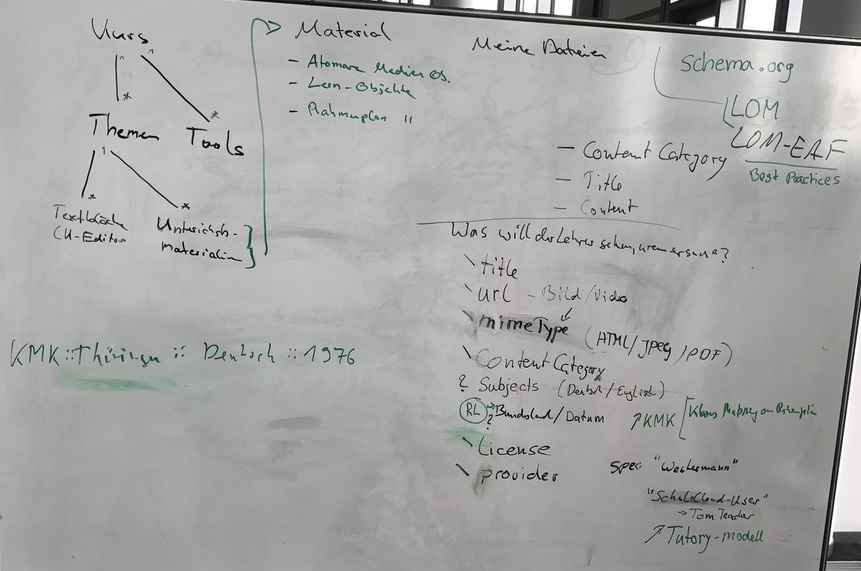 Kurs
*
*
Themen
Tools
*
*
Textblöcke
CK-Editor
Unterrichts-
materialien
Material
- Atomare Medien OS.
- Lern-Objekte
- Rahmenplan "
Meine Dateien
schema.org
LOM
LOM-EAF
Best Practices
- Content Category
- Title
- Content
Was will der Lehrer sehen, wenn er sucht?
\ title
\ url - Bild/Video
\ mimeType (HTML/JPEG/PDF)
\ Content Category
? Subjects (Deutsch/English)
RL ? Bundesland/Datum
↗ KMK [ Klaus
\ License
\ provider
Spec: "Westermann"
"Schul-Cloud-User"
→ Tom Teacher
↗ Tutory-modell
KMK::Thüringen::Deutsch::1976